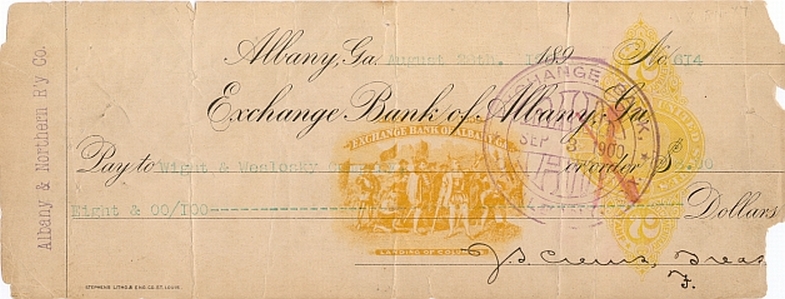 Albany & Northern R'y Co.
Albany, Ga. August 28th. 189 No. 614
Exchange Bank of Albany, Ga.
EXCHANGE BANK
SEP 3 1900
EXCHANGE BANK OF ALBANY GA.
Pay to Wight & Weslosky or order $
Eight & 00/100 Dollars
LANDING OF COLUMBUS
J.S. Crews, Treas
F.
STEPHENS LITHO. & ENG. CO. ST. LOUIS.